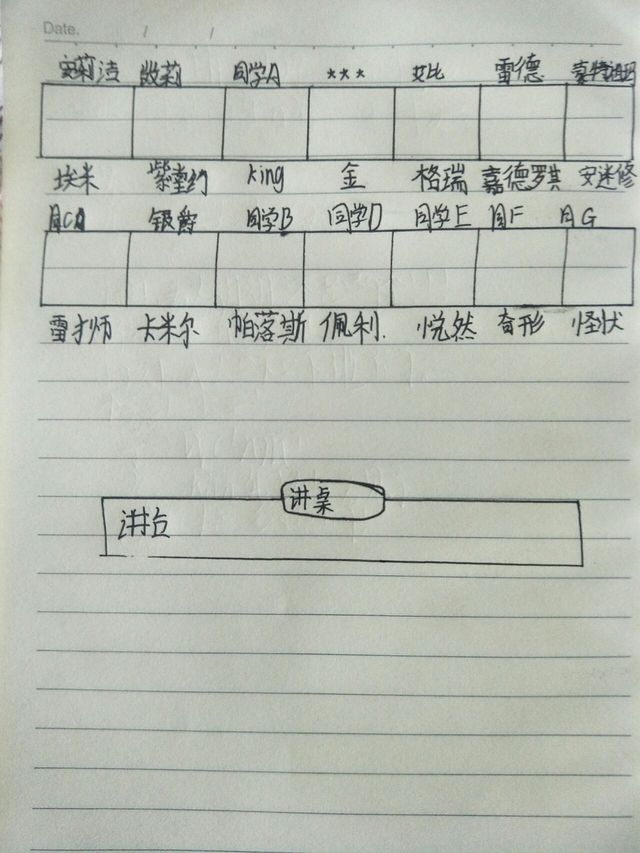 Date. / /
安莉洁 凯莉 同学A *** 艾比 雷德 蒙特祖玛
埃米 紫堂幻 King 金 格瑞 嘉德罗斯 安迷修
同C 银爵 同学B 同学D 同学E 同F 同G
雷狮 卡米尔 帕洛斯 佩利. 悦然 奇形 怪状
讲桌
讲台